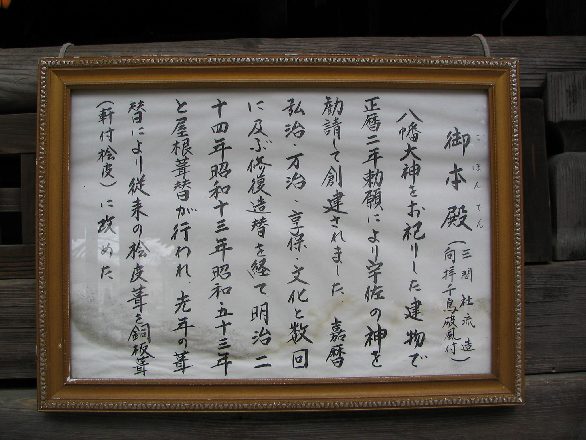 御本殿(三間社流造
向拝千鳥破風付)
ごほんでん
八幡大神をお祀りした建物で
正暦二年勅願により宇佐の神を
勧請して創建されました。嘉暦
弘治・万治・享保・文化と数回
に及ぶ修復造替を経て明治二
十四年昭和十三年昭和五十三年
と屋根葺替が行われ、先年の葺
替により従来の桧皮葺を銅板葺
(軒付桧皮)に改めた